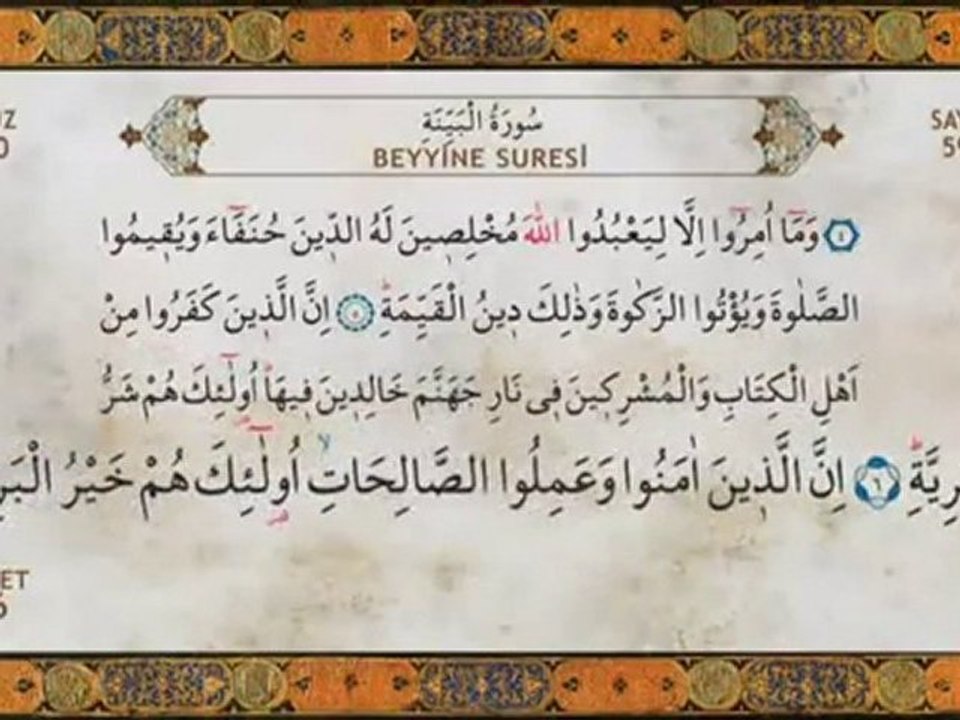 سُورَةُ الْبَيِّنَةِ
BEYYİNE SURESİ
٤ وَمَٓا اُمِرُٓوا اِلَّا لِيَعْبُدُوا اللّٰهَ مُخْلِصِينَ لَهُ الدِّينَ حُنَفَٓاءَ وَيُقِيمُوا
الصَّلٰوةَ وَيُؤْتُوا الزَّكٰوةَ وَذٰلِكَ دِينُ الْقَيِّمَةِۜ ٥ اِنَّ الَّذِينَ كَفَرُوا مِنْ
اَهْلِ الْكِتَابِ وَالْمُشْرِكِينَ فِي نَارِ جَهَنَّمَ خَالِدِينَ فِيهَاۜ اُو۬لٰٓئِكَ هُمْ شَرُّ
رِيَّةِۜ ٦ اِنَّ الَّذِينَ اٰمَنُوا وَعَمِلُوا الصَّالِحَاتِۙ اُو۬لٰٓئِكَ هُمْ خَيْرُ الْبَرِ